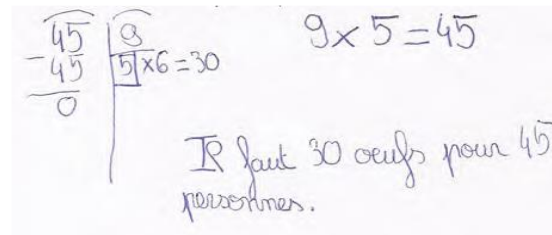 45 9
-45 5 ×6=30
0
9×5=45
Il faut 30 oeufs pour 45
personnes.